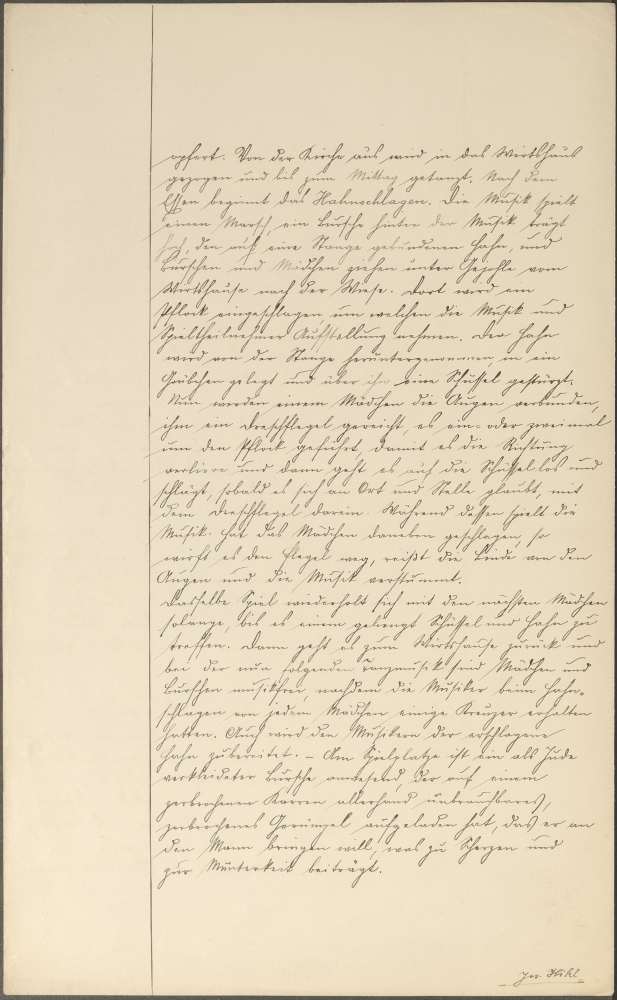 opfert. Von der Kirche aus wird in das Wirtshaus
gezogen und bis zum Mittag getanzt. Nach dem
Essen beginnt das Hahnschlagen. Die Musik spielt
einen Marsch, ein Bursche hinter der Musik trägt
den auf eine Stange gebundenen Hahn, und
Burschen und Mädchen ziehen unter Gejohle vom
Wirtshause nach der Wiese. Dort wird ein
Pflock eingeschlagen um welchen die Musik und
Spieltheilnehmer Aufstellung nehmen. Der Hahn
wird von der Stange heruntergenommen in ein
Grübchen gelegt und über ihn eine Schüssel gestürzt.
Nun werden einem Mädchen die Augen verbunden,
ihm ein Dreschflegel gereicht, es ein- oder zweimal
um den Pflock geführt, damit es die Richtung
verliere und dann geht es auf die Schüssel los und
schlägt, sobald es sich an Ort und Stelle glaubt, mit
dem Dreschflegel darein. Während dessen spielt die
Musik. Hat das Mädchen daneben geschlagen, so
wirft es den Flegel weg, reißt die Binde von den
Augen und die Musik verstummt.
Dasselbe Spiel wiederholt sich mit den nächsten Mädchen
solange, bis es einem gelingt Schüssel und Hahn zu
treffen. Dann geht es zum Wirtshause zurück und
bei der nun folgenden Tanzmusik sind Mädchen und
Burschen musikfrei, nachdem die Musiker beim Hahn-
schlagen von jedem Mädchen einige Kreuzer erhalten
hatten. Auch wird den Musikern der erschlagene
Hahn zubereitet. - Am Spielplatze ist ein als Jude
verkleideter Bursche anwesend, der auf einem
zerbrochenen Karren allerhand unbrauchbares,
zerbrochenes Gerümpel aufgeladen hat, das er an
den Mann bringen will, was zu Scherzen und
zur Munterkeit beiträgt.